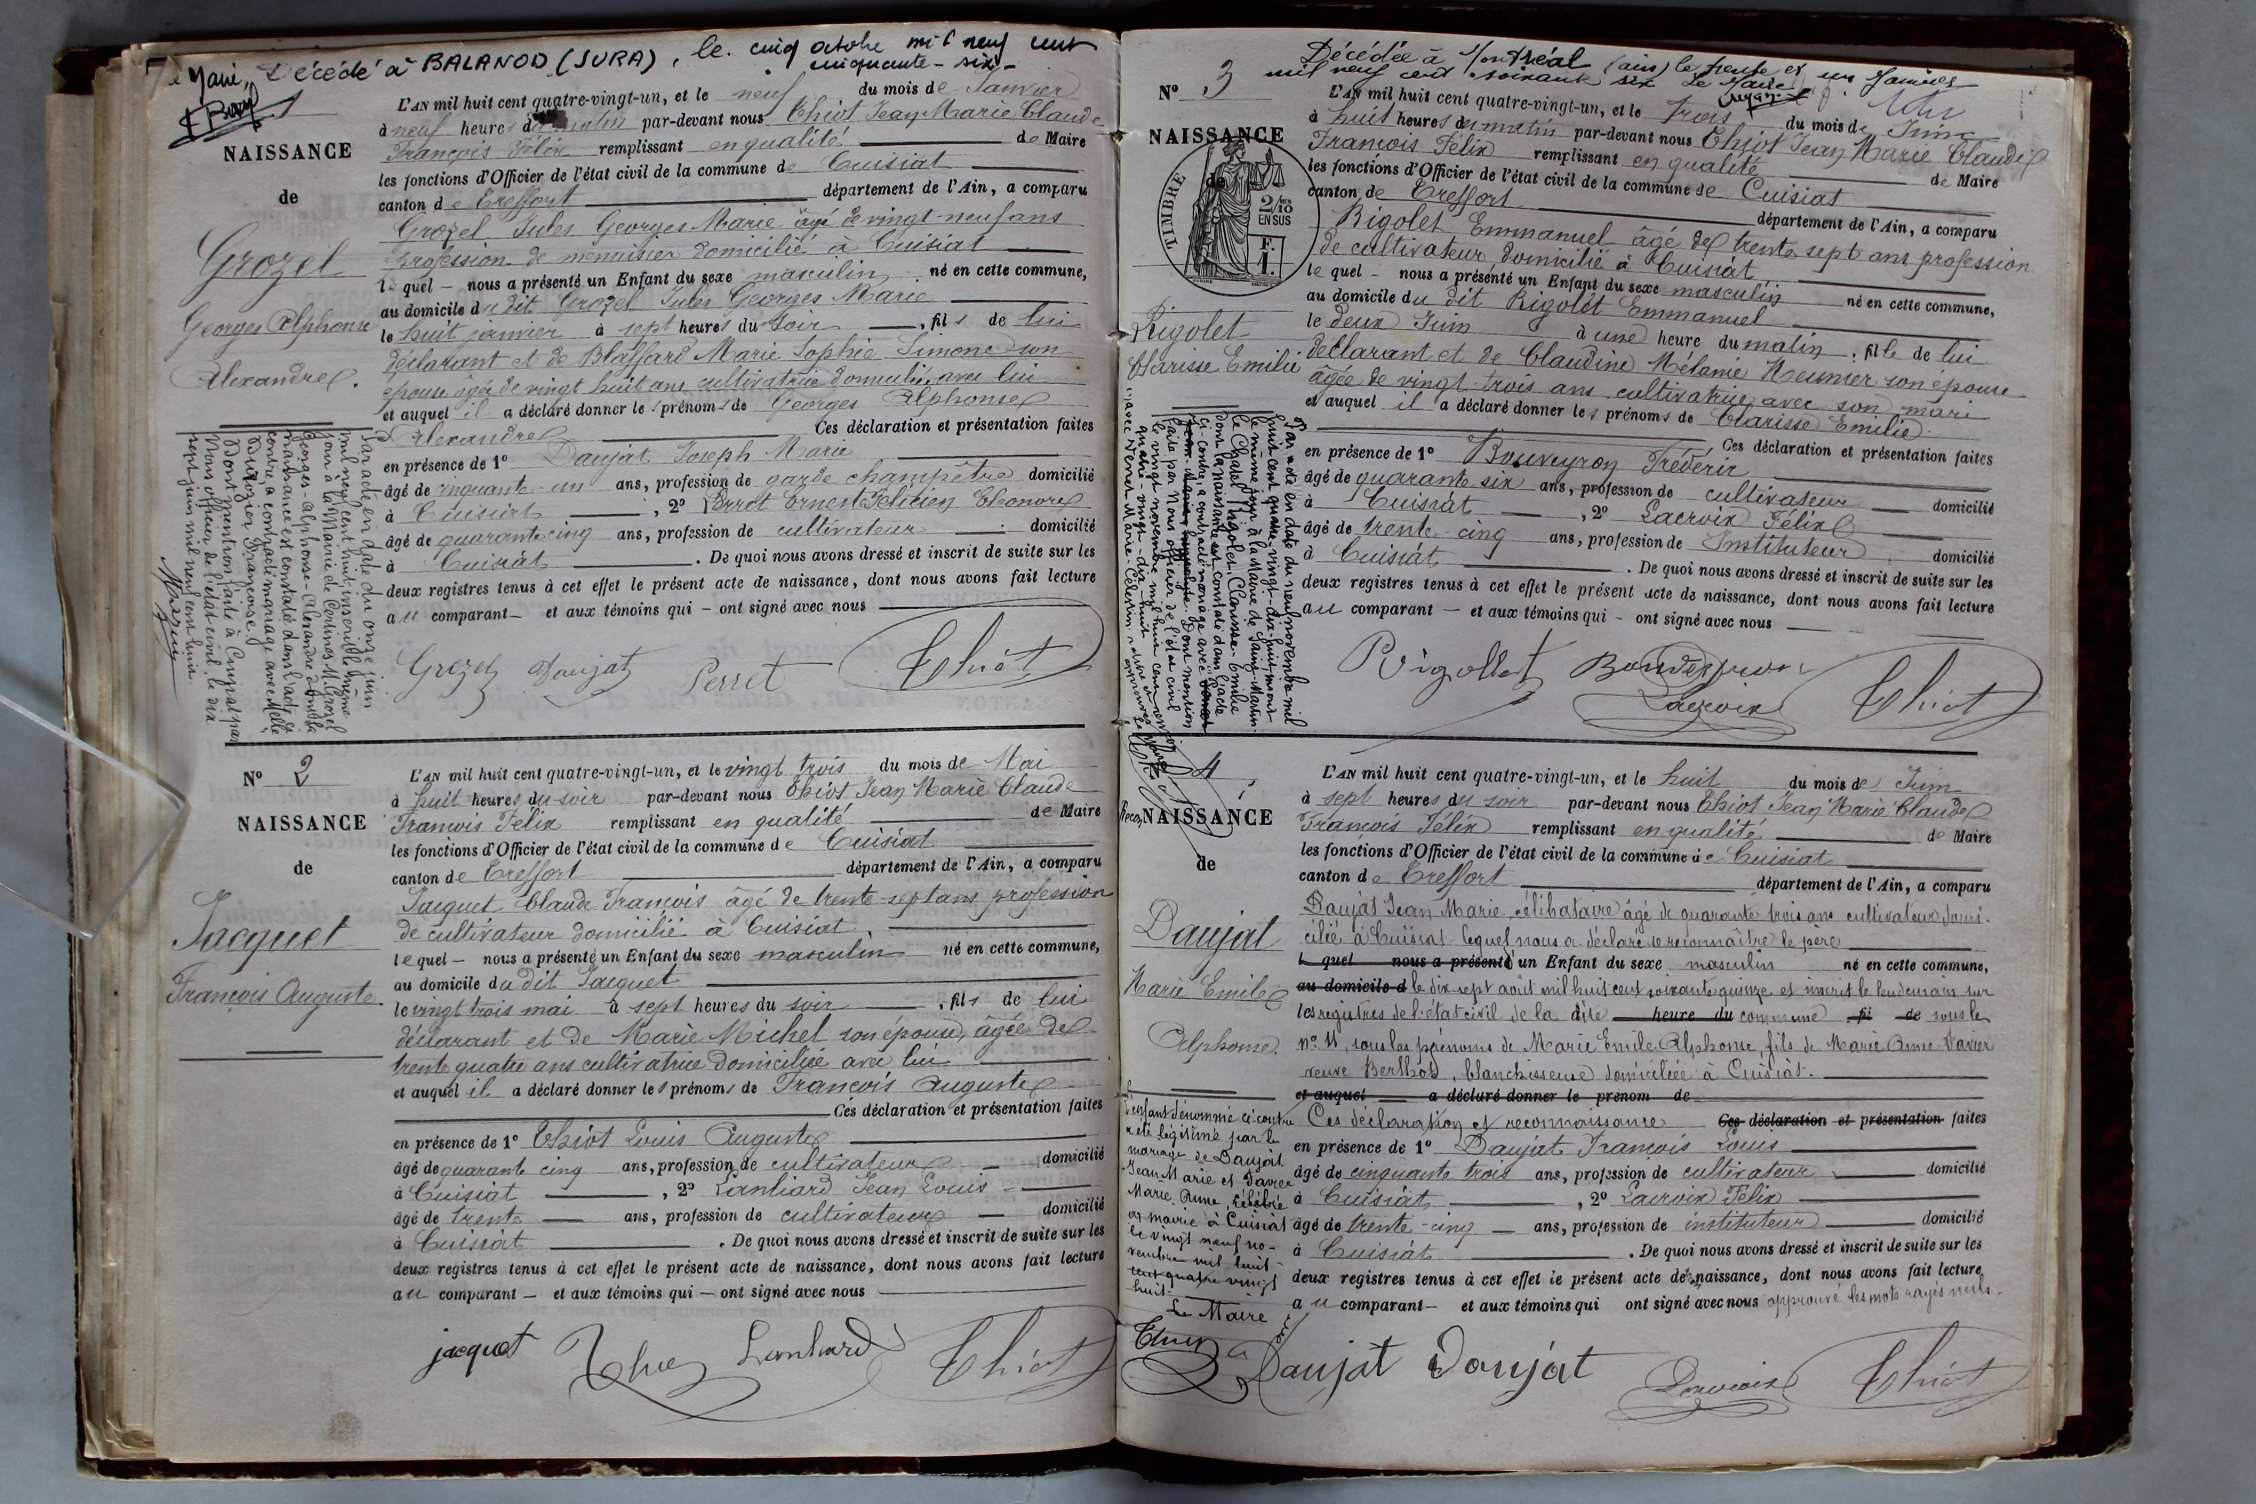 Le Maire, Décédé à BALANOD (JURA), le cinq octobre mil neuf cent
cinquante-six
NAISSANCE
de
Grozel
Georges Alphonse
Alexandre.
L'AN mil huit cent quatre-vingt-un, et le neuf du mois de Janvier
à neuf heures du matin par-devant nous Chiot Jean Marie Claude
François Félix remplissant en qualité de Maire
les fonctions d'Officier de l'état civil de la commune de Cuisiat
canton de Treffort département de l'Ain, a comparu
Grozel Jules Georges Marie âgé de vingt-neuf ans
profession de menuisier domicilié à Cuisiat
lequel — nous a présenté un Enfant du sexe masculin né en cette commune,
au domicile du dit Grozel Jules Georges Marie
le huit janvier à sept heures du soir, fils de lui
déclarant et de Blaffard Marie Sophie Simone son
épouse âgée de vingt huit ans cultivatrice domiciliée avec lui
et auquel il a déclaré donner les prénoms de Georges Alphonse
Alexandre Ces déclaration et présentation faites
en présence de 1° Daujat Joseph Marie
âgé de cinquante-un ans, profession de garde champêtre domicilié
à Cuisiat, 2° Perret Ernest Félicien Eléonore
âgé de quarante cinq ans, profession de cultivateur domicilié
à Cuisiat. De quoi nous avons dressé et inscrit de suite sur les
deux registres tenus à cet effet le présent acte de naissance, dont nous avons fait lecture
au comparant — et aux témoins qui — ont signé avec nous
Par acte en date du onze juin
mil neuf cent huit, inscrit le même
jour à la Mairie de Certines M. Grozel
Georges-Alphonse-Alexandre dont la
naissance est constatée dans l'acte ci
contre, a contracté mariage avec Melle
Françoise.
Dont mention faite à Cuisiat par
Nous officier de l'état-civil, le dix
sept juin mil neuf cent huit.
Grozel Daujat Perret Chiot
N° 2
NAISSANCE
de
Jacquet
François Auguste
L'AN mil huit cent quatre-vingt-un, et le vingt trois du mois de Mai
à huit heures du soir par-devant nous Chiot Jean Marie Claude
François Félix remplissant en qualité de Maire
les fonctions d'Officier de l'état civil de la commune de Cuisiat
canton de Treffort département de l'Ain, a comparu
Jacquet Claude François âgé de trente-sept ans profession
de cultivateur domicilié à Cuisiat
lequel — nous a présenté un Enfant du sexe masculin né en cette commune,
au domicile du dit Jacquet
le vingt trois mai à sept heures du soir, fils de lui
déclarant et de Marie Michel son épouse, âgée de
trente quatre ans cultivatrice domiciliée avec lui
et auquel il a déclaré donner les prénoms de François Auguste
Ces déclaration et présentation faites
en présence de 1° Chiot Louis Auguste
âgé de quarante cinq ans, profession de cultivateur domicilié
à Cuisiat, 2° Lanhard Jean Louis
âgé de trente ans, profession de cultivateur domicilié
à Cuisiat. De quoi nous avons dressé et inscrit de suite sur les
deux registres tenus à cet effet le présent acte de naissance, dont nous avons fait lecture
au comparant — et aux témoins qui — ont signé avec nous
jacquet Lanhard Chiot
Décédée à Montréal (ain) le trente et un Janvier
mil neuf cent soixante six Le Maire
N° 3
NAISSANCE
de
TIMBRE
2/10 EN SUS
Rigolet
Clarisse Emilie
L'AN mil huit cent quatre-vingt-un, et le trois du mois de Juin
à huit heures du matin par-devant nous Chiot Jean Marie Claude
François Félix remplissant en qualité de Maire
les fonctions d'Officier de l'état civil de la commune de Cuisiat
canton de Treffort département de l'Ain, a comparu
Rigolet Emmanuel âgé de trente sept ans profession
de cultivateur domicilié à Cuisiat
le quel — nous a présenté un Enfant du sexe masculin né en cette commune,
au domicile du dit Rigolet Emmanuel
le deux Juin à une heure du matin, fille de lui
déclarant et de Claudine Mélanie Meunier son épouse
âgée de vingt-trois ans cultivatrice avec son mari
et auquel il a déclaré donner les prénoms de Clarisse Emilie.
Ces déclaration et présentation faites
en présence de 1° Bouveyron Frédéric
âgé de quarante six ans, profession de cultivateur domicilié
à Cuisiat, 2° Lacroix Félix
âgé de trente-cinq ans, profession de Instituteur domicilié
à Cuisiat. De quoi nous avons dressé et inscrit de suite sur les
deux registres tenus à cet effet le présent acte de naissance, dont nous avons fait lecture
au comparant — et aux témoins qui — ont signé avec nous
Par acte en date du neuf novembre mil
huit cent quatre-vingt-dix-huit inscrit
le même jour à la Mairie de Saint-Martin
le Chatel Rigolet Clarisse-Emilie
dont la naissance est constatée dans l'acte
ci-contre, a contracté mariage avec
Dont mention
faite par Nous officier de l'état civil
le vingt novembre mil huit cent
quatre-vingt-dix-huit
Rigollet Bouveyron
Lacroix Chiot
4
NAISSANCE
de
Daujat
Marie Emile
Alphonse.
L'AN mil huit cent quatre-vingt-un, et le huit du mois de Juin
à sept heures du soir par-devant nous Chiot Jean Marie Claude
François Félix remplissant en qualité de Maire
les fonctions d'Officier de l'état civil de la commune de Cuisiat
canton de Treffort département de l'Ain, a comparu
Daujat Jean Marie, célibataire âgé de quarante trois ans cultivateur domi-
cilié à Cuisiat lequel nous a déclaré se reconnaître le père
l quel nous a présenté un Enfant du sexe masculin né en cette commune,
au domicile d le dix sept août mil huit cent soixante quinze et inscrit le lendemain sur
les registres de l'état civil de la dite heure du commune fi de sous le
n° 11, sous les prénoms de Marie Emile Alphonse, fils de Marie Anne Tavier
veuve Berthod, blanchisseuse domiciliée à Cuisiat.
et auquel a déclaré donner le prenom de
Ces déclaration et reconnaissance Ces déclaration et présentation faites
en présence de 1° Daujat François Louis
âgé de cinquante trois ans, profession de cultivateur domicilié
à Cuisiat, 2° Lacroix Félix
âgé de trente-cinq ans, profession de instituteur domicilié
à Cuisiat. De quoi nous avons dressé et inscrit de suite sur les
deux registres tenus à cet effet le présent acte de naissance, dont nous avons fait lecture
au comparant — et aux témoins qui ont signé avec nous approuvé les mots rayés nuls.
L'enfant dénommé ci-contre
a été légitimé par le
mariage de Daujat
Jean Marie et Tavier
Marie Anne, célébré
en mairie à Cuisiat
le vingt neuf no-
vembre mil huit-
cent quatre vingt
huit
Le Maire
Daujat Daujat Lacroix Chiot